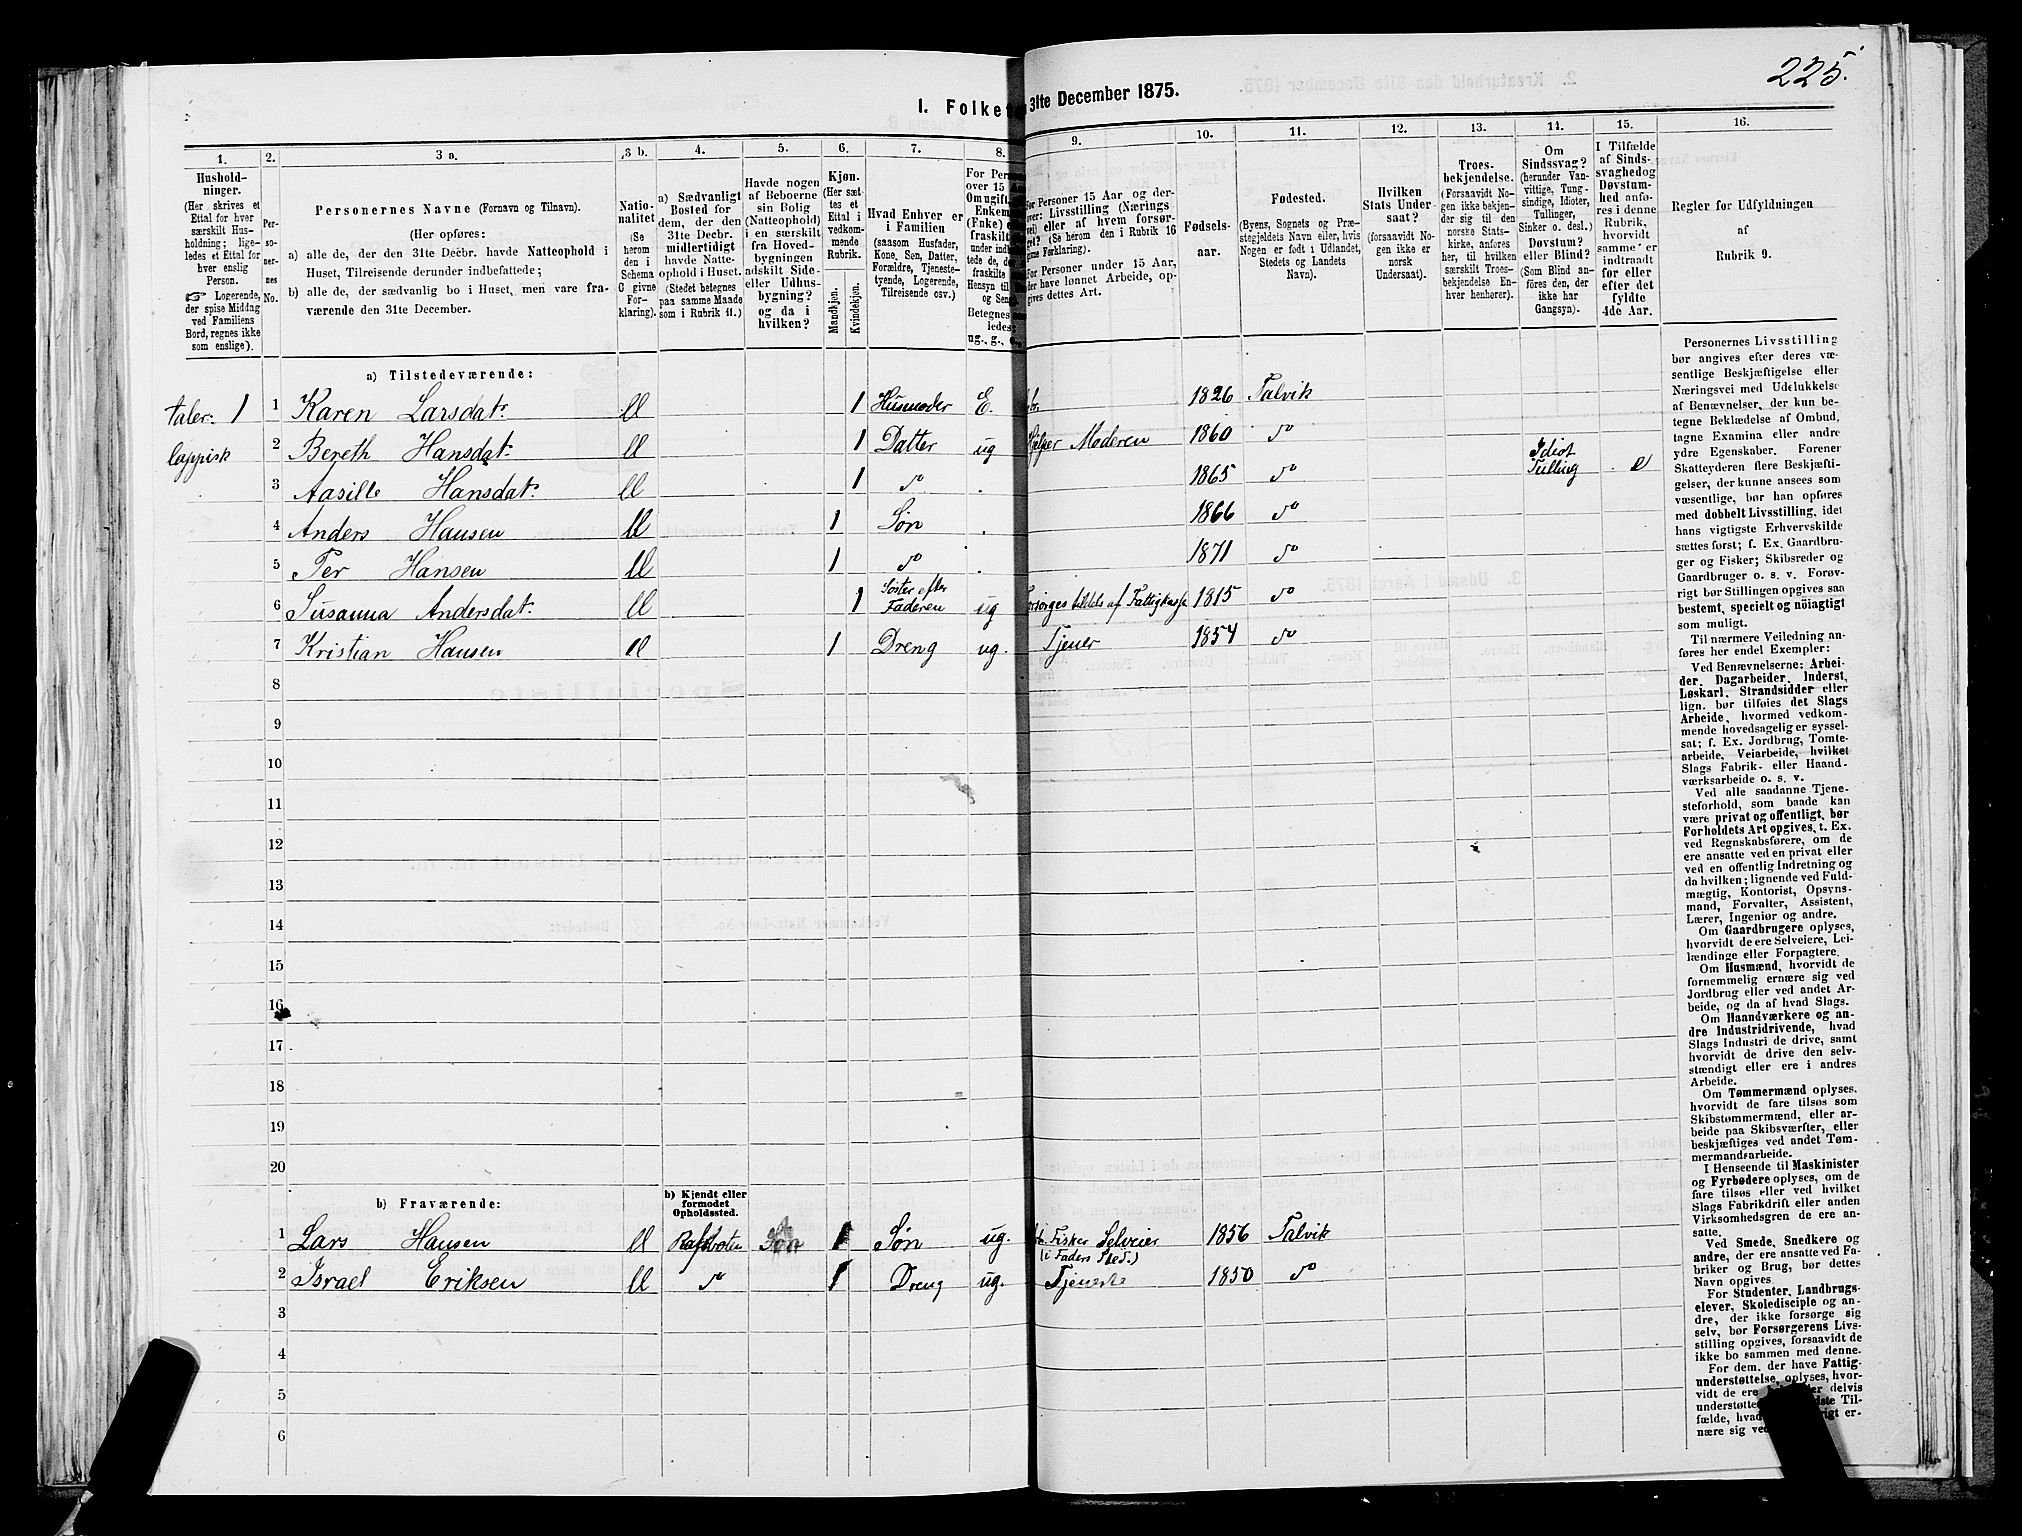 225.
I. Folke 31te December 1875.
1. 2. 3 a. 3 b. 4. 5. 6. 7. 8. 9. 10. 11. 12. 13. 14. 15. 16.
Husholdninger.
(Her skrives et Ettal for hver særskilt Husholdning; ligeledes et Ettal for hver enslig Person.
☞ Logerende, der spise Middag ved Familiens Bord, regnes ikke som enslige).
Personernes No.
Personernes Navne (Fornavn og Tilnavn).
(Her opføres:
a) alle de, der den 31te Decbr. havde Natteophold i Huset, Tilreisende derunder indbefattede;
b) alle de, der sædvanlig bo i Huset, men vare fraværende den 31te December.
Nationalitet (Se herom den i Schema C givne Forklaring).
a) Sædvanligt Bosted for dem, der den 31te Decbr. midlertidigt havde Natteophold i Huset. (Stedet betegnes paa samme Maade som i Rubrik 11.)
Havde nogen af Beboerne sin Bolig (Natteophold) i en særskilt fra Hovedbygningen adskilt Side- eller Udhusbygning? og da i hvilken?
Kjøn. (Her sættes et Ettal i vedkommende Rubrik.
Mandkjøn. Kvindekjøn.
Hvad Enhver er i Familien (saasom Husfader, Kone, Søn, Datter, Forældre, Tjenestetyende, Logerende, Tilreisende osv.)
For Personer 15 Aar og derover: Livsstilling (Næringsvei) eller af hvem forsørget? (Se herom den i Rubrik 16 givne Førklaring).
For Personer under 15 Aar, der have lønnet Arbeide, opgives dettes Art.
Fødselsaar.
Fødested.
(Byens, Sognets og Præstegjeldets Navn eller, hvis Nogen er født i Udlandet, Stedets og Landets Navn).
Hvilken Stats Undersaat?
(forsaavidt Nogen ikke er norsk Undersaat).
Troesbekjendelse.
(Forsaavidt Nogen ikke bekjender sig til den norske Statskirke, anføres her, til hvilken særskilt Troesbekjendelse Enhver henhører).
Om Sindssvag? (herunder Vanvittige, Tungsindige, Idioter, Tullinger, Sinker o. desl.) Døvstum? eller Blind? (Som Blind anføres den, der ikke har Gangsyn).
I Tilfælde af Sindssvaghed og Døvstumhed anføres i denne Rubrik, hvorvidt samme er indtraadt før eller efter det fyldte 4de Aar.
Regler for Udfyldningen
af
Rubrik 9.
a) Tilstedeværende:
taler: 1 1 Karen Larsdat. 1 Husmoder E. 1826 Talvik
lappisk 2 Bereth Hansdat. 1 Datter ug Hjelper Moderen 1860 do
3 Aasille Hansdat. 1 do 1865 do Idiot Tulling
4 Anders Hansen 1 Søn 1866 do
5 Per Hansen 1 do 1871 do
6 Susanna Andersdat. 1 Søster efter Faderen ug Forsørges tildels af Fattigkasse 1815 do
7 Kristian Hansen 1 Dreng ug. Tjener 1854 do
8
9
10
11
12
13
14
15
16
17
18
19
20
b) Fraværende: b) Kjendt eller formodet Opholdssted.
1 Lars Hansen Rafsboten 1 Søn ug. Fisker Selveier (i Faders Sted.) 1856 Talvik
2 Israel Eriksen do 1 Dreng ug. Tjeneste 1850 do
3
4
5
6
Personernes Livsstilling
bør angives efter deres væ-
sentlige Beskjæftigelse eller
Næringsvei med Udelukkelse
af Benævnelser, der kun be-
tegne Beklædelse af Ombud,
tagne Examina eller andre
ydre Egenskaber. Forener
Skatteyderen flere Beskjæfti-
gelser, der kunne ansees som
væsentlige, bør han opføres
med dobbelt Livsstilling, idet
hans vigtigste Erhvervskilde
sættes først; f. Ex. Gaardbru-
ger og Fisker; Skibsreder og
Gaardbruger o. s. v. Forøv-
rigt bør Stillingen opgives saa
bestemt, specielt og nøiagtigt
som muligt.
Til nærmere Veiledning an-
føres her endel Exempler:
Ved Benævnelserne: Arbei-
der, Dagarbeider, Inderst,
Løskarl, Strandsidder eller
lign. bør tilføies det Slags
Arbeide, hvormed vedkom-
mende hovedsagelig er syssel-
sat; f. Ex. Jordbrug, Tomte-
arbeide, Veiarbeide, hvilket
Slags Fabrik- eller Haand-
værksarbeide o. s. v.
Ved alle saadanne Tjene-
steforhold, som baade kan
være privat og offentligt, bør
Forholdets Art opgives, t. Ex.
ved Regnskabsførere, om de
ere ansatte ved en privat eller
ved en offentlig Indretning og
da hvilken; lignende ved Fuld-
mægtig, Kontorist, Opsyns-
mand, Forvalter, Assistent,
Lærer, Ingeniør og andre.
Om Gaardbrugere oplyses,
hvorvidt de ere Selveiere, Lei-
lændinge eller Forpagtere.
Om Husmænd, hvorvidt de
fornemmelig ernære sig ved
Jordbrug eller ved andet Ar-
beide, og da af hvad Slags.
Om Haandværkere og an-
dre Industridrivende, hvad
Slags Industri de drive, samt
hvorvidt de drive den selv-
stændigt eller ere i andres
Arbeide.
Om Tømmermænd oplyses,
hvorvidt de fare tilsøs som
Skibstømmermænd, eller ar-
beide paa Skibsværfter, eller
beskjæftiges ved andet Tøm-
mermandsarbeide.
I Henseende til Maskinister
og Fyrbødere oplyses, om de
fare tilsøs eller ved hvilket
Slags Fabrikdrift eller anden
Virksomhedsgren de ere an-
satte.
Ved Smede, Snedkere og
andre, der ere ansatte ved Fa-
briker og Brug, bør dettes
Navn opgives.
For Studenter, Landbrugs-
elever, Skoledisciple og an-
dre, der ikke forsørge sig
selv, bør Forsørgerens Livs-
stilling opgives, forsaavidt de
ikke bo sammen med denne.
For dem, der have Fattig-
understøttelse, oplyses, hvor-
vidt de ere delvis
understøtte Til-
fælde, hvad er-
nære sig ved